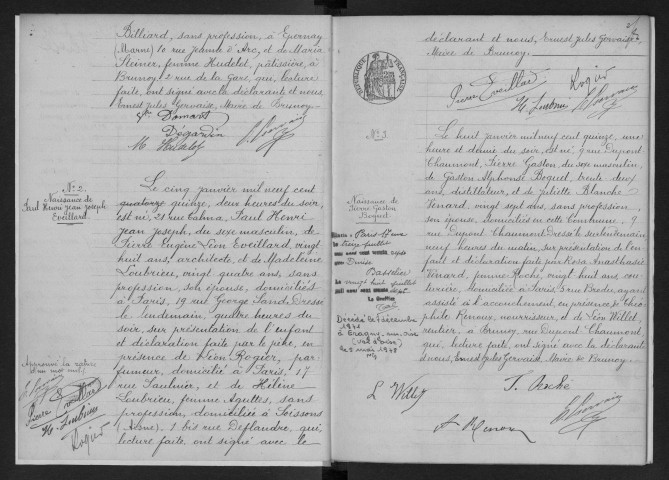 Billiard, sans profession, à Epernay
(Marne) 10 rue Jeanne d'Arc, et de Maria
Steiner, femme Hudelot, pâtissière, à
Brunoy 2 rue de la Gare, qui, lecture
faite, ont signé avec le déclarant et nous
Ernest Jules Gervaise, Maire de Brunoy.
Dégardin
M Hudelot
N° 2.
Naissance de
Paul Henri Jean Joseph
Eveillard.
Le cinq janvier mil neuf cent
quatorze quinze, deux heures du soir,
est né, 21 rue Talma, Paul Henri
Jean Joseph, du sexe masculin, de
Pierre Eugène Léon Eveillard, vingt
huit ans, architecte, et de Madeleine
Loubrieu, vingt quatre ans, sans
profession, son épouse, domiciliés
à Paris, 19 rue George Sand. Dressé
le lendemain, quatre heures du
soir, sur présentation de l'enfant
et déclaration faite par le père, en
présence de Léon Rogier, par-
fumeur, domicilié à Paris, 17
rue Saulnier, et de Hélène
Loubrieu, femme Aguttes, sans
profession, domiciliée à Soissons
(Aisne) 1 bis rue Deflandre, qui,
lecture faite, ont signé avec le
Approuvé la rature
d'un mot nul.
Pierre Eveillard
H. Loubrieu
Rogier
déclarant et nous, Ernest Jules Gervaise,
Maire de Brunoy.
Pierre Eveillard Rogier
H. Loubrieu
REPUBLIQUE FRANÇAISE
N° 3.
Naissance de
Pierre Gaston
Boquet.
Le huit janvier mil neuf cent quinze, une
heure et demie du soir, est né, 9 rue Dupont
Chaumont, Pierre Gaston, du sexe masculin,
de Gaston Alphonse Boquet, trente deux
ans, distillateur, et de Juliette Blanche
Venard, vingt sept ans, sans profession,
son épouse, domiciliés en cette Commune, 9
rue Dupont Chaumont. Dressé le surlendemain
neuf heures du matin, sur présentation de l'en-
fant et déclaration faite par Rosa Anasthasie
Venard, femme Roche, vingt huit ans, cou-
turière, domiciliée à Paris, 5 rue Breda, ayant
assisté à l'accouchement, en présence, de Théo-
phile Renoux, nourrisseur, et de Léon Willet,
rentier, à Brunoy, rue Dupont Chaumont,
qui, lecture faite, ont signé avec la déclarante
et nous, Ernest Jules Gervaise, Maire de Brunoy.
Paris 17 eme
treize juillet
mil neuf cent
avec Denise
Basselier
Le vingt huit juillet
mil neuf cent
Le Greffier
Décédé
à Eragny sur Oise
(Val d'Oise)
L. Willet